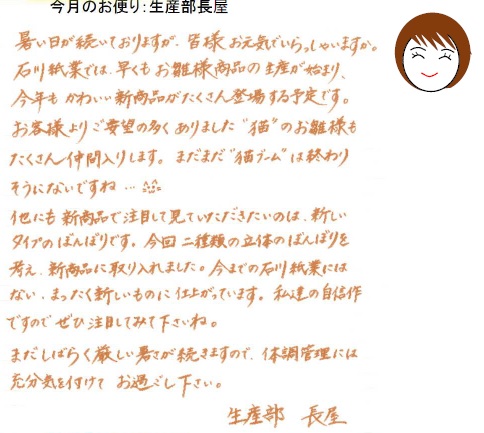 今月のお便り:生産部長屋
暑い日が続いておりますが、皆様お元気でいらっしゃいますか。
石川紙業では、早くもお雛様商品の生産が始まり、
今年も かわいい新商品がたくさん登場する予定です。
お客様よりご要望の多くありました"猫"のお雛様も
たくさん仲間入りします。まだまだ"猫ブーム"は終わり
そうにないですね…
他にも新商品で注目して見ていただきたいのは、新しい
タイプのぼんぼりです。今回二種類の立体のぼんぼりを
考え、新商品に取り入れました。今までの石川紙業には
ない、まったく新しいものに仕上がっています。私達の自信作
ですので ぜひ注目してみて下さいね。
まだしばらく厳しい暑さが続きますので、体調管理には
充分気を付けて お過ごし下さい。
生産部 長屋